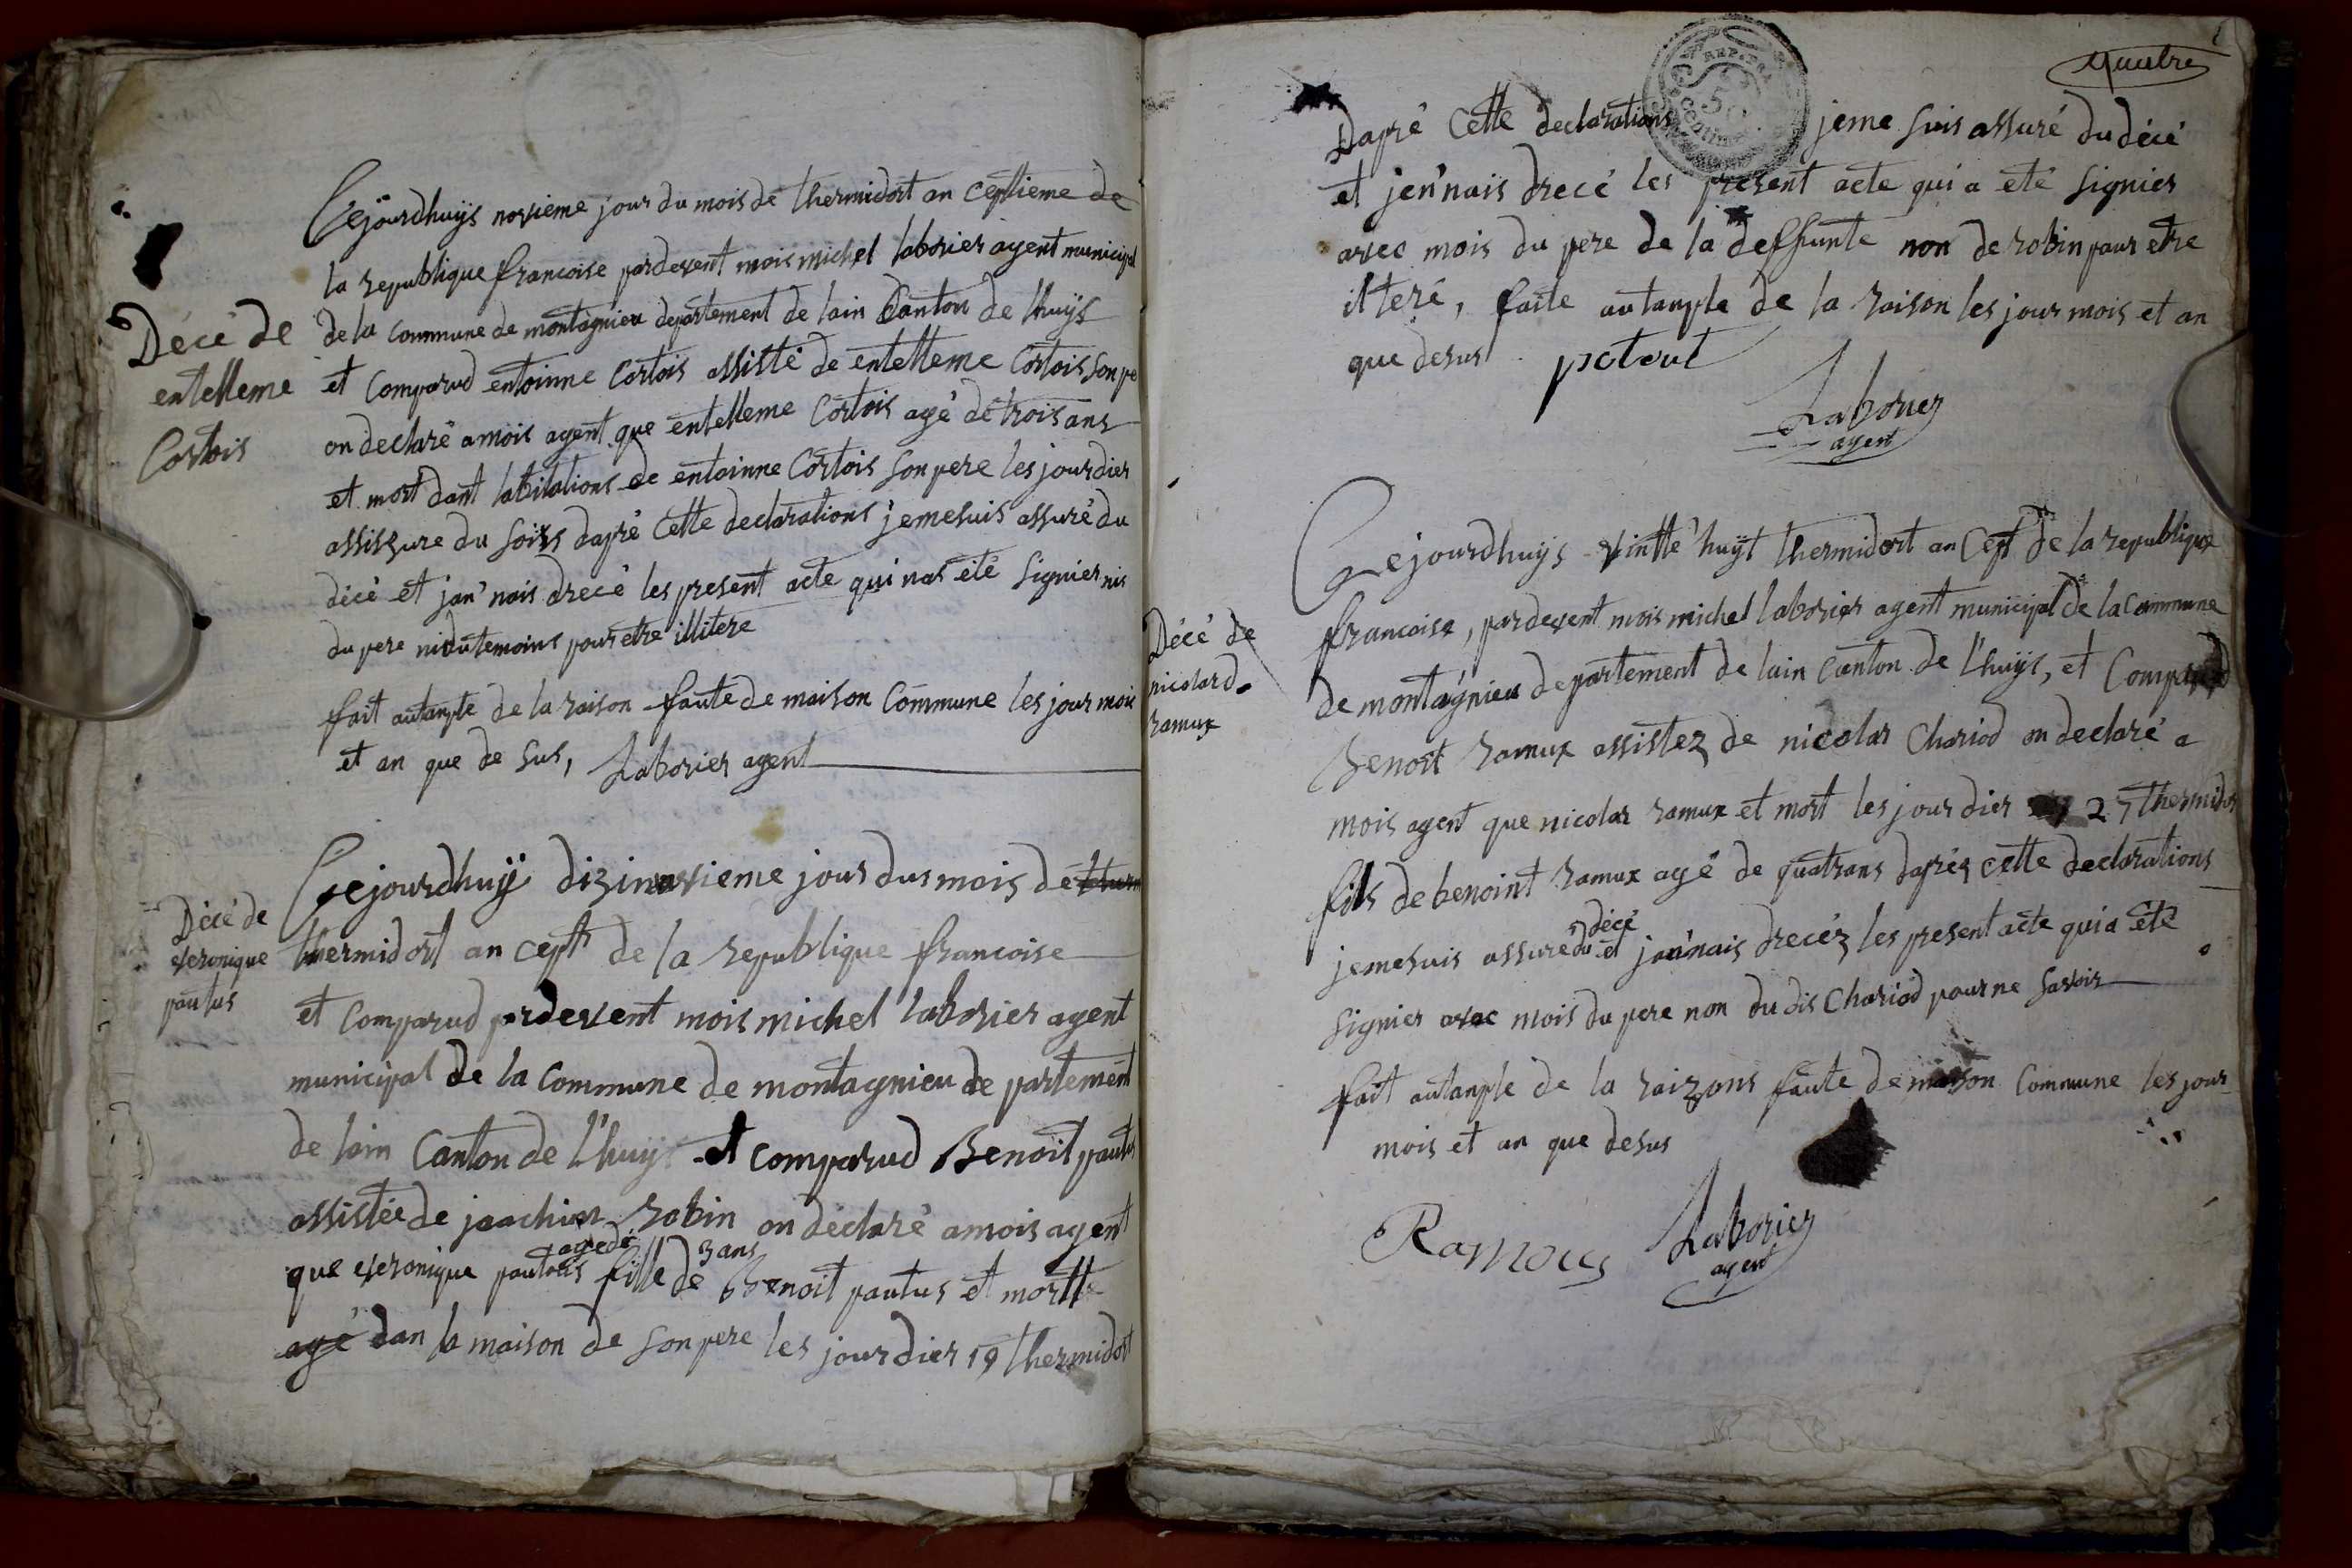 Décé de
entelleme
Cortois
Cejourdhuÿs novieme jour du mois de thermidort an ceptieme de
la republique francoise pardevent mois michel laborier agent municipal
de la commune de montagnieu departement de lain Canton de lhuÿs
et comparud entoinne Cortois assisté de entelleme Cortois son pe
on declaré amois agent que entelleme Cortois agé de trois ans
et mort dant labitations de entoinne Cortois son pere les jourdier
assissure du soirs dapré cette declarations jemesuis assuré du
décé et jan'nais drecé les present acte qui nas été signier nis
du pere nidutemoins pour etre illitere
fait autanple de la raison faute de maison Commune les jour mois
et an que de sus, Laborier agent
Décé de
veronique
pautus
Cejourdhuÿ dizinovieme jour dus mois de therm
thermidort an cept de la republique francoise
et comparud pardevent mois michel laborier agent
municipal de la commune de montagnieu de partement
de lain Canton de l'huÿs et comparud Benoit pautus
assistée de joachim robin on déclaré amois agent
agede 3 ans
que veronique pautus fille de Benoit pautus et mortte
agé dan la maison de son pere les jourdier 19 thermidort
quatre
REP. FRA.
50
Centimes
Dapré cette declarations jeme suis assuré du décé
et jen'nais drecé les present acte qui a eté signier
avec mois du pere de la deffunte non de robin pour etre
ilteré, faite autanple de la raison les jour mois et an
que desus potout
Laborier
agent
Décé de
nicolard
ramux
Cejourdhuÿs vintté huÿt thermidort an Cept de la republique
francoise, pardevent mois michel laborier agent municipal de la Commune
de montagnieu departement de lain Canton de l'huÿs, et Comparud
Benoit ramux assistez de nicolas Chariod on declaré a
mois agent que nicolas ramux et mort les jourdier 27 thermidor
fils de benoint ramux agé de quatrans daprés cette declarations
décé
jemesuis assuré du et jan'nais drecéz les present acte qui a été
signier avec mois du pere non du dis Chariod pour ne savoir
fait autanple de la raizons faute de maison Commune les jour
mois et an que desus
Ramous Laborier
agent